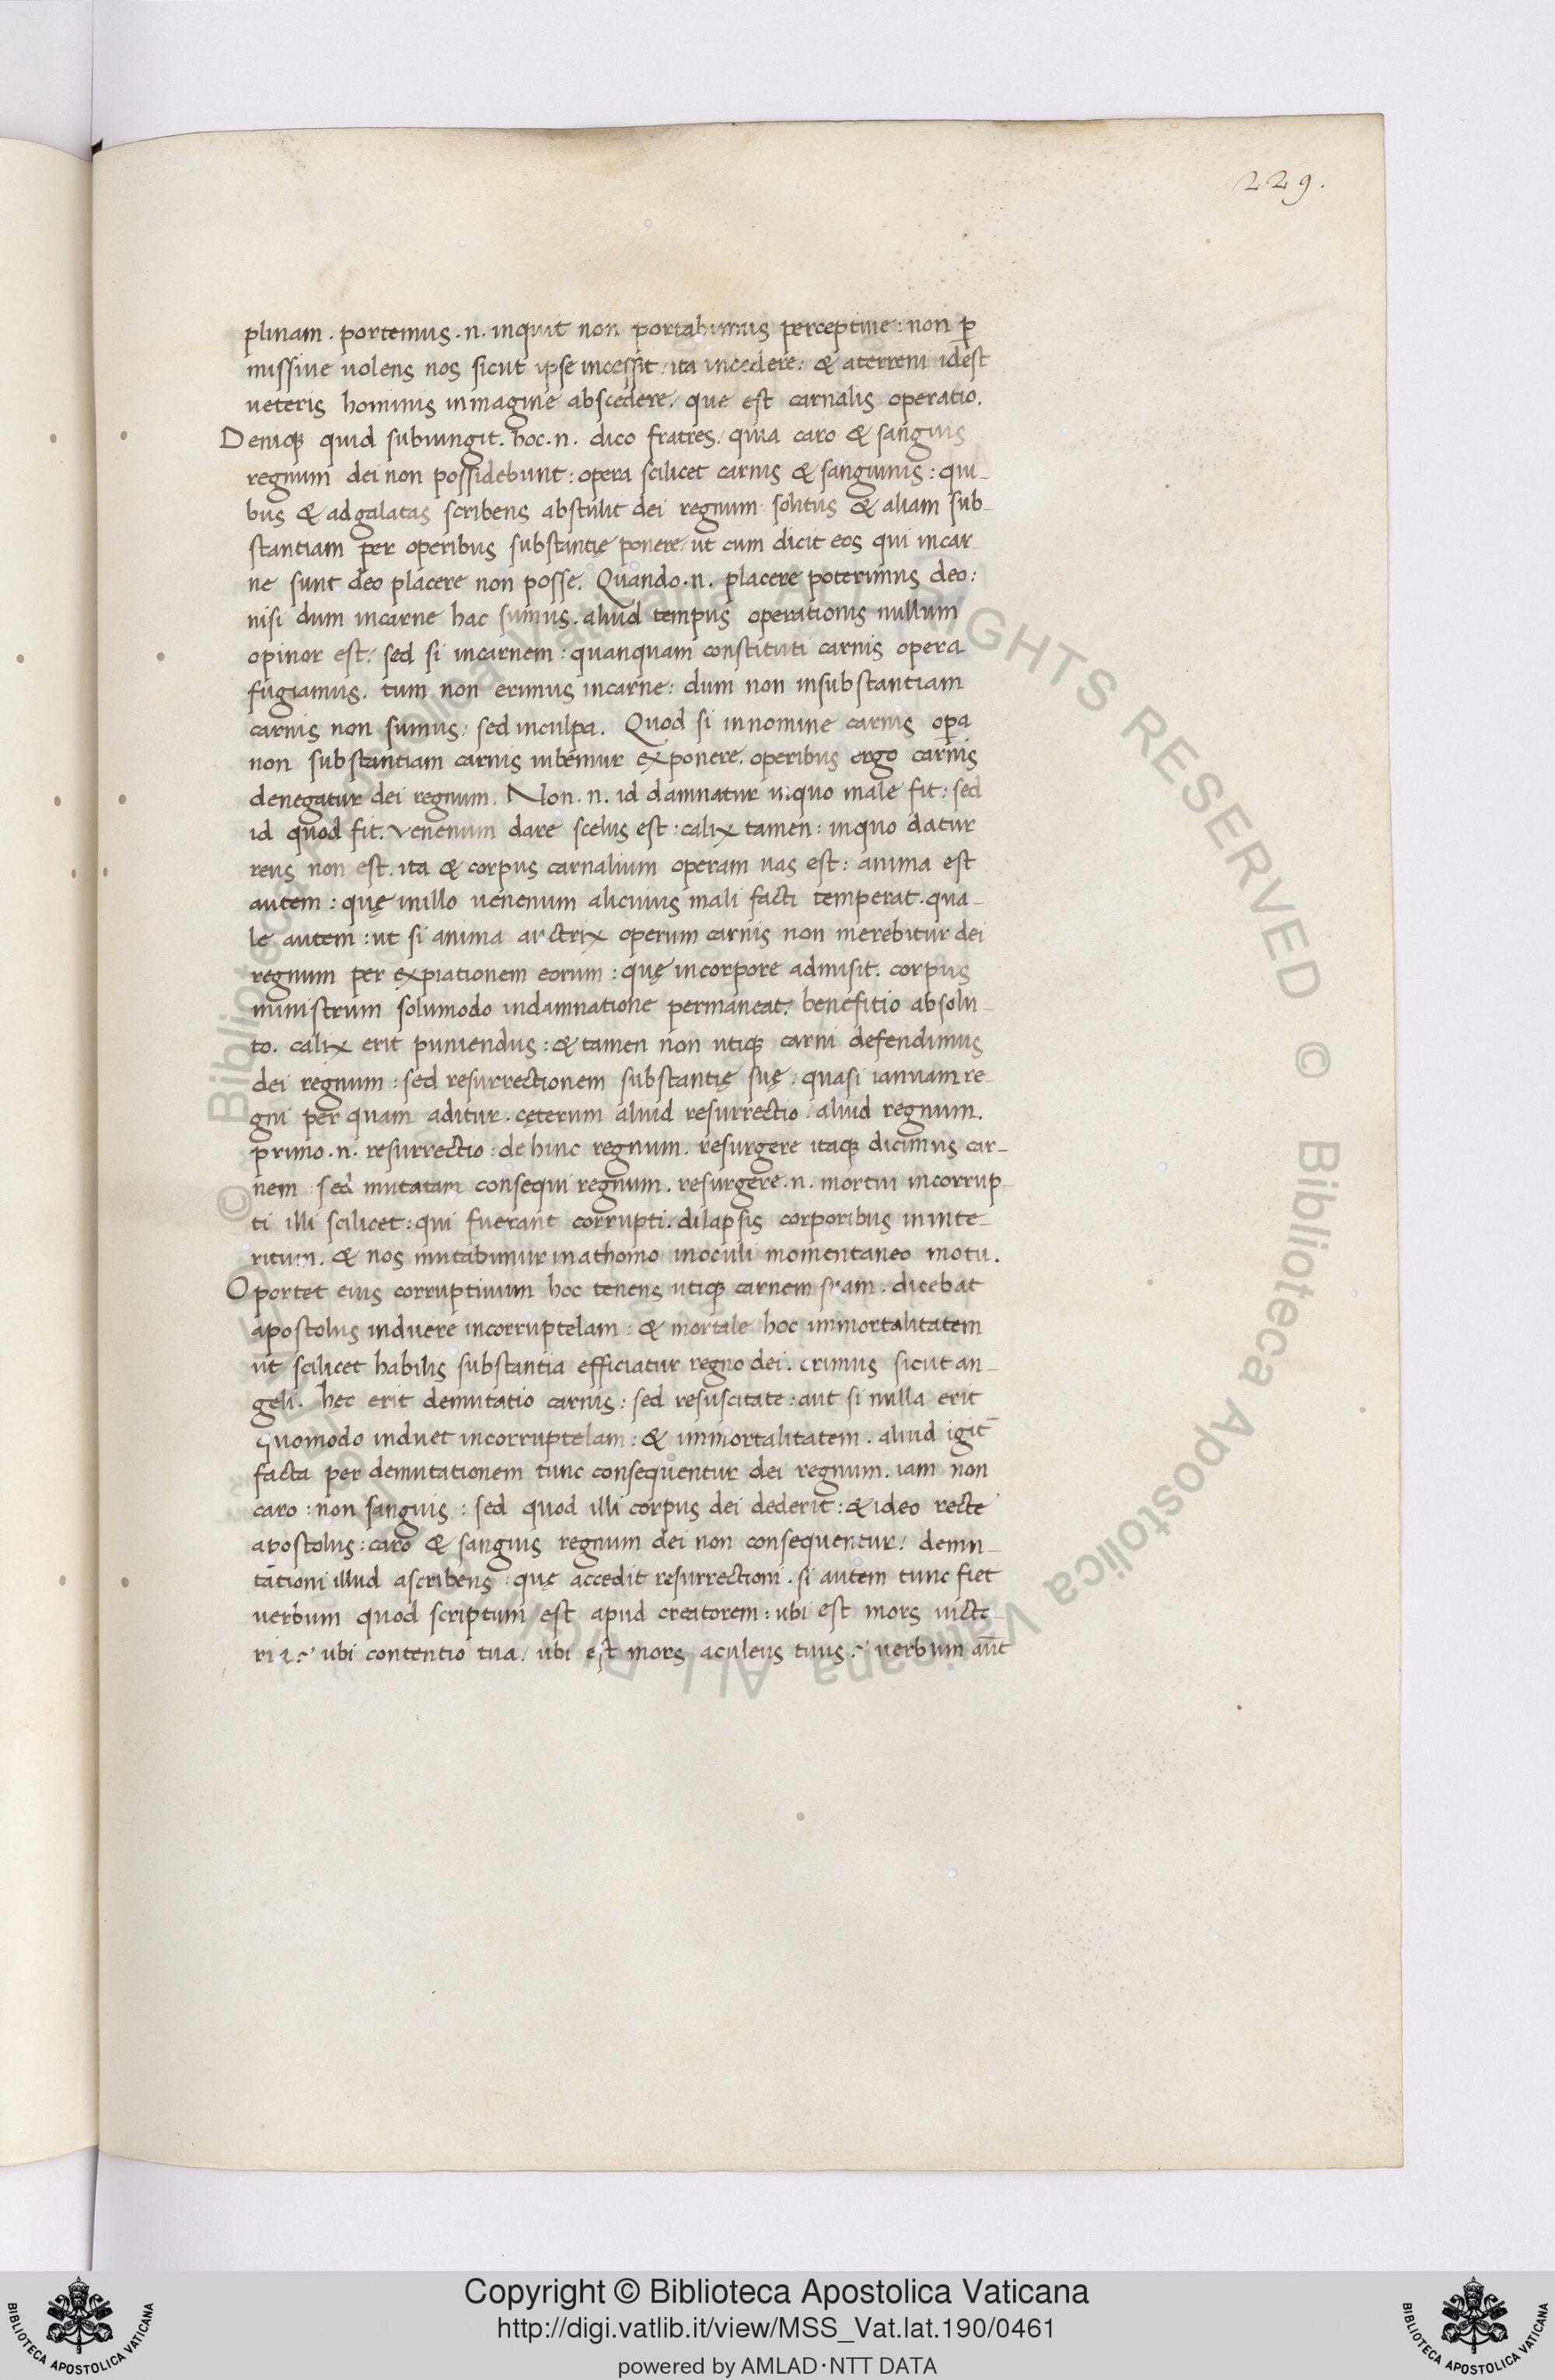 229.
plinam. portemus .n. inquit non portabimus perceptiue: non p̱
missiue uolens nos sicut ipse incessit, ita incedere: & aterreni idest
ueteris hominis inmagine abscedere, que est carnalis operatio.
Deniqꝫ quid subiungit. hoc .n. dico fratres, quia caro & sanguis
regnum dei non possidebunt: opera scilicet carnis & sanguinis: qui-
bus & adgalatas scribens abstulit dei regnum solitus & aliam sub-
stantiam per operibus substantię ponere, ut cum dicit eos qui incar-
ne sunt deo placere non posse. Quando .n. placere poterimus deo:
nisi dum incarne hac sumus. aliud tempus operationis nullum
opinor est, sed si incarnem: quanquam constituti carnis opera
fugiamus. tum non erimus incarne: dum non insubstantiam
carnis non sumus, sed inculpa. Quod si innomine carnis op̱a
non substantiam carnis iubemur exponere. operibus ergo carnis
denegatur dei regnum. Non .n. id damnatur inquo male fit: sed
id quod fit. venenum dare scelus est: calix tamen: inquo datur
reus non est. ita & corpus carnalium operam uas est: anima est
autem: quę inillo uenenum alicuius mali facti temperat. qua-
le autem: ut si anima arctrix operum carnis non merebitur dei
regnum per expiationem eorum: quę incorpore admisit. corpus
ministrum solumodo indamnatione permaneat, benefitio absolu-
to. calix erit puniendus: & tamen non utiqꝫ carni defendimus
dei regnum: sed resurrectionem substantię suę: quasi ianuam re-
gni per quam aditur. cęterum aliud resurrectio. aliud regnum.
primo .n. resurrectio: de hinc regnum. resurgere itaqꝫ dicimus car-
nem: sed mutatam consequi regnum. resurgere .n. mortui incorrup-
ti illi scilicet: qui fuerant corrupti. dilapsis corporibus ininte-
ritum. & nos mutabimur inathomo inoculi momentaneo motu.
Oportet eius corruptiuum hoc tenens utiqꝫ carnem suam. dicebat
apostolus induere incorruptelam: & mortale hoc immortalitatem
ut scilicet habilis substantia efficiatur regno dei. erimus sicut an-
geli. hęc erit demutatio carnis: sed resuscitate: aut si nulla erit
quomodo induet incorruptelam: & immortalitatem. aliud igit̄
facta per demutationem tunc consequentur dei regnum. iam non
caro: non sanguis: sed quod illi corpus dei dederit: & ideo recte
apostolus: caro & sanguis regnum dei non consequentur, demu-
tationi illud ascribens: quę accedit resurrectioni. si autem tunc fiet
uerbum quod scriptum est apud creatorem: ubi est mors uicto-
ria? ubi contentio tua, ubi est mors aculeus tuus? uerbum aūt
Copyright © Biblioteca Apostolica Vaticana
http://digi.vatlib.it/view/MSS_Vat.lat.190/0461
powered by AMLAD·NTT DATA
BIBLIOTECA APOSTOLICA VATICANA
BIBLIOTECA APOSTOLICA VATICANA